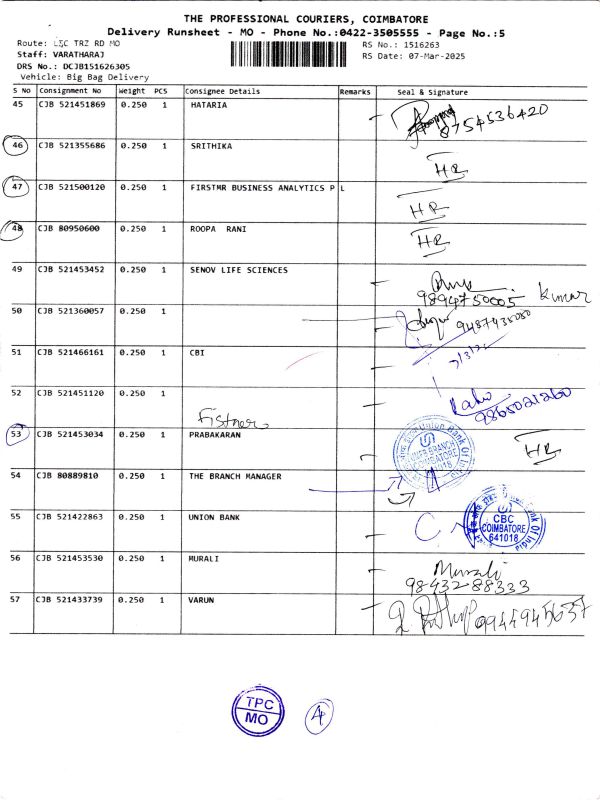 THE PROFESSIONAL COURIERS, COIMBATORE
Delivery Runsheet - MO - Phone No.:0422-3505555 - Page No.:5
Route: TRZ RD MO
RS No.: 1516263
Staff: VARATHARAJ
RS Date: 07-Mar-2025
DRS No.: DCJB151626305
Vehicle: Big Bag Delivery
S No Consignment No Weight PCS Consignee Details Remarks Seal & Signature
45 CJB 521451869 0.250 1 HATARIA
8754536420
46 CJB 521355686 0.250 1 SRITHIKA
HR
47 CJB 521500120 0.250 1 FIRSTMR BUSINESS ANALYTICS P L
HR
48 CJB 80950600 0.250 1 ROOPA RANI
HR
49 CJB 521453452 0.250 1 SENOV LIFE SCIENCES
9894750005 Kumar
50 CJB 521360057 0.250 1
9487435080
51 CJB 521466161 0.250 1 CBI
52 CJB 521451120 0.250 1
9865021260
53 CJB 521453034 0.250 1 PRABAKARAN
HR
Union Bank Of
BRANCH
54 CJB 80889810 0.250 1 THE BRANCH MANAGER
55 CJB 521422863 0.250 1 UNION BANK
CBC
COIMBATORE
641018
56 CJB 521453530 0.250 1 MURALI
Murali
9843288333
57 CJB 521433739 0.250 1 VARUN
9944945637
TPC
MO
4